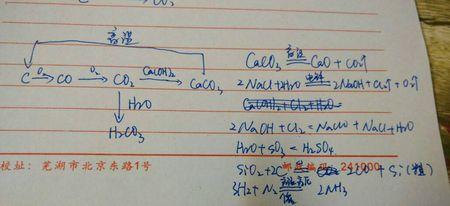 高温
C O₂→ CO O₂→ CO₂ Ca(OH)₂→ CaCO₃
↓ H₂O
H₂CO₃
CaCO₃ 高温 CaO + CO₂↑
2NaCl + H₂O 电解 2NaOH + Cl₂↑ + O₂↑
Ca(OH)₂ + Cl₂ + H₂O
2NaOH + Cl₂ = NaClO + NaCl + H₂O
H₂O + SO₃ = H₂SO₄
SiO₂ + 2C 2CO + Si (粗)
3H₂ + N₂ 高温高压 2NH₃
校址：芜湖市北京东路1号 邮政编码：241000